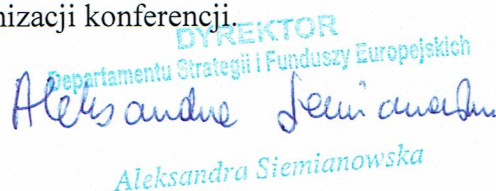 nizacji konferencji.
DYREKTOR
Departamentu Strategii i Funduszy Europejskich
Aleksandra Siemianowska
Aleksandra Siemianowska